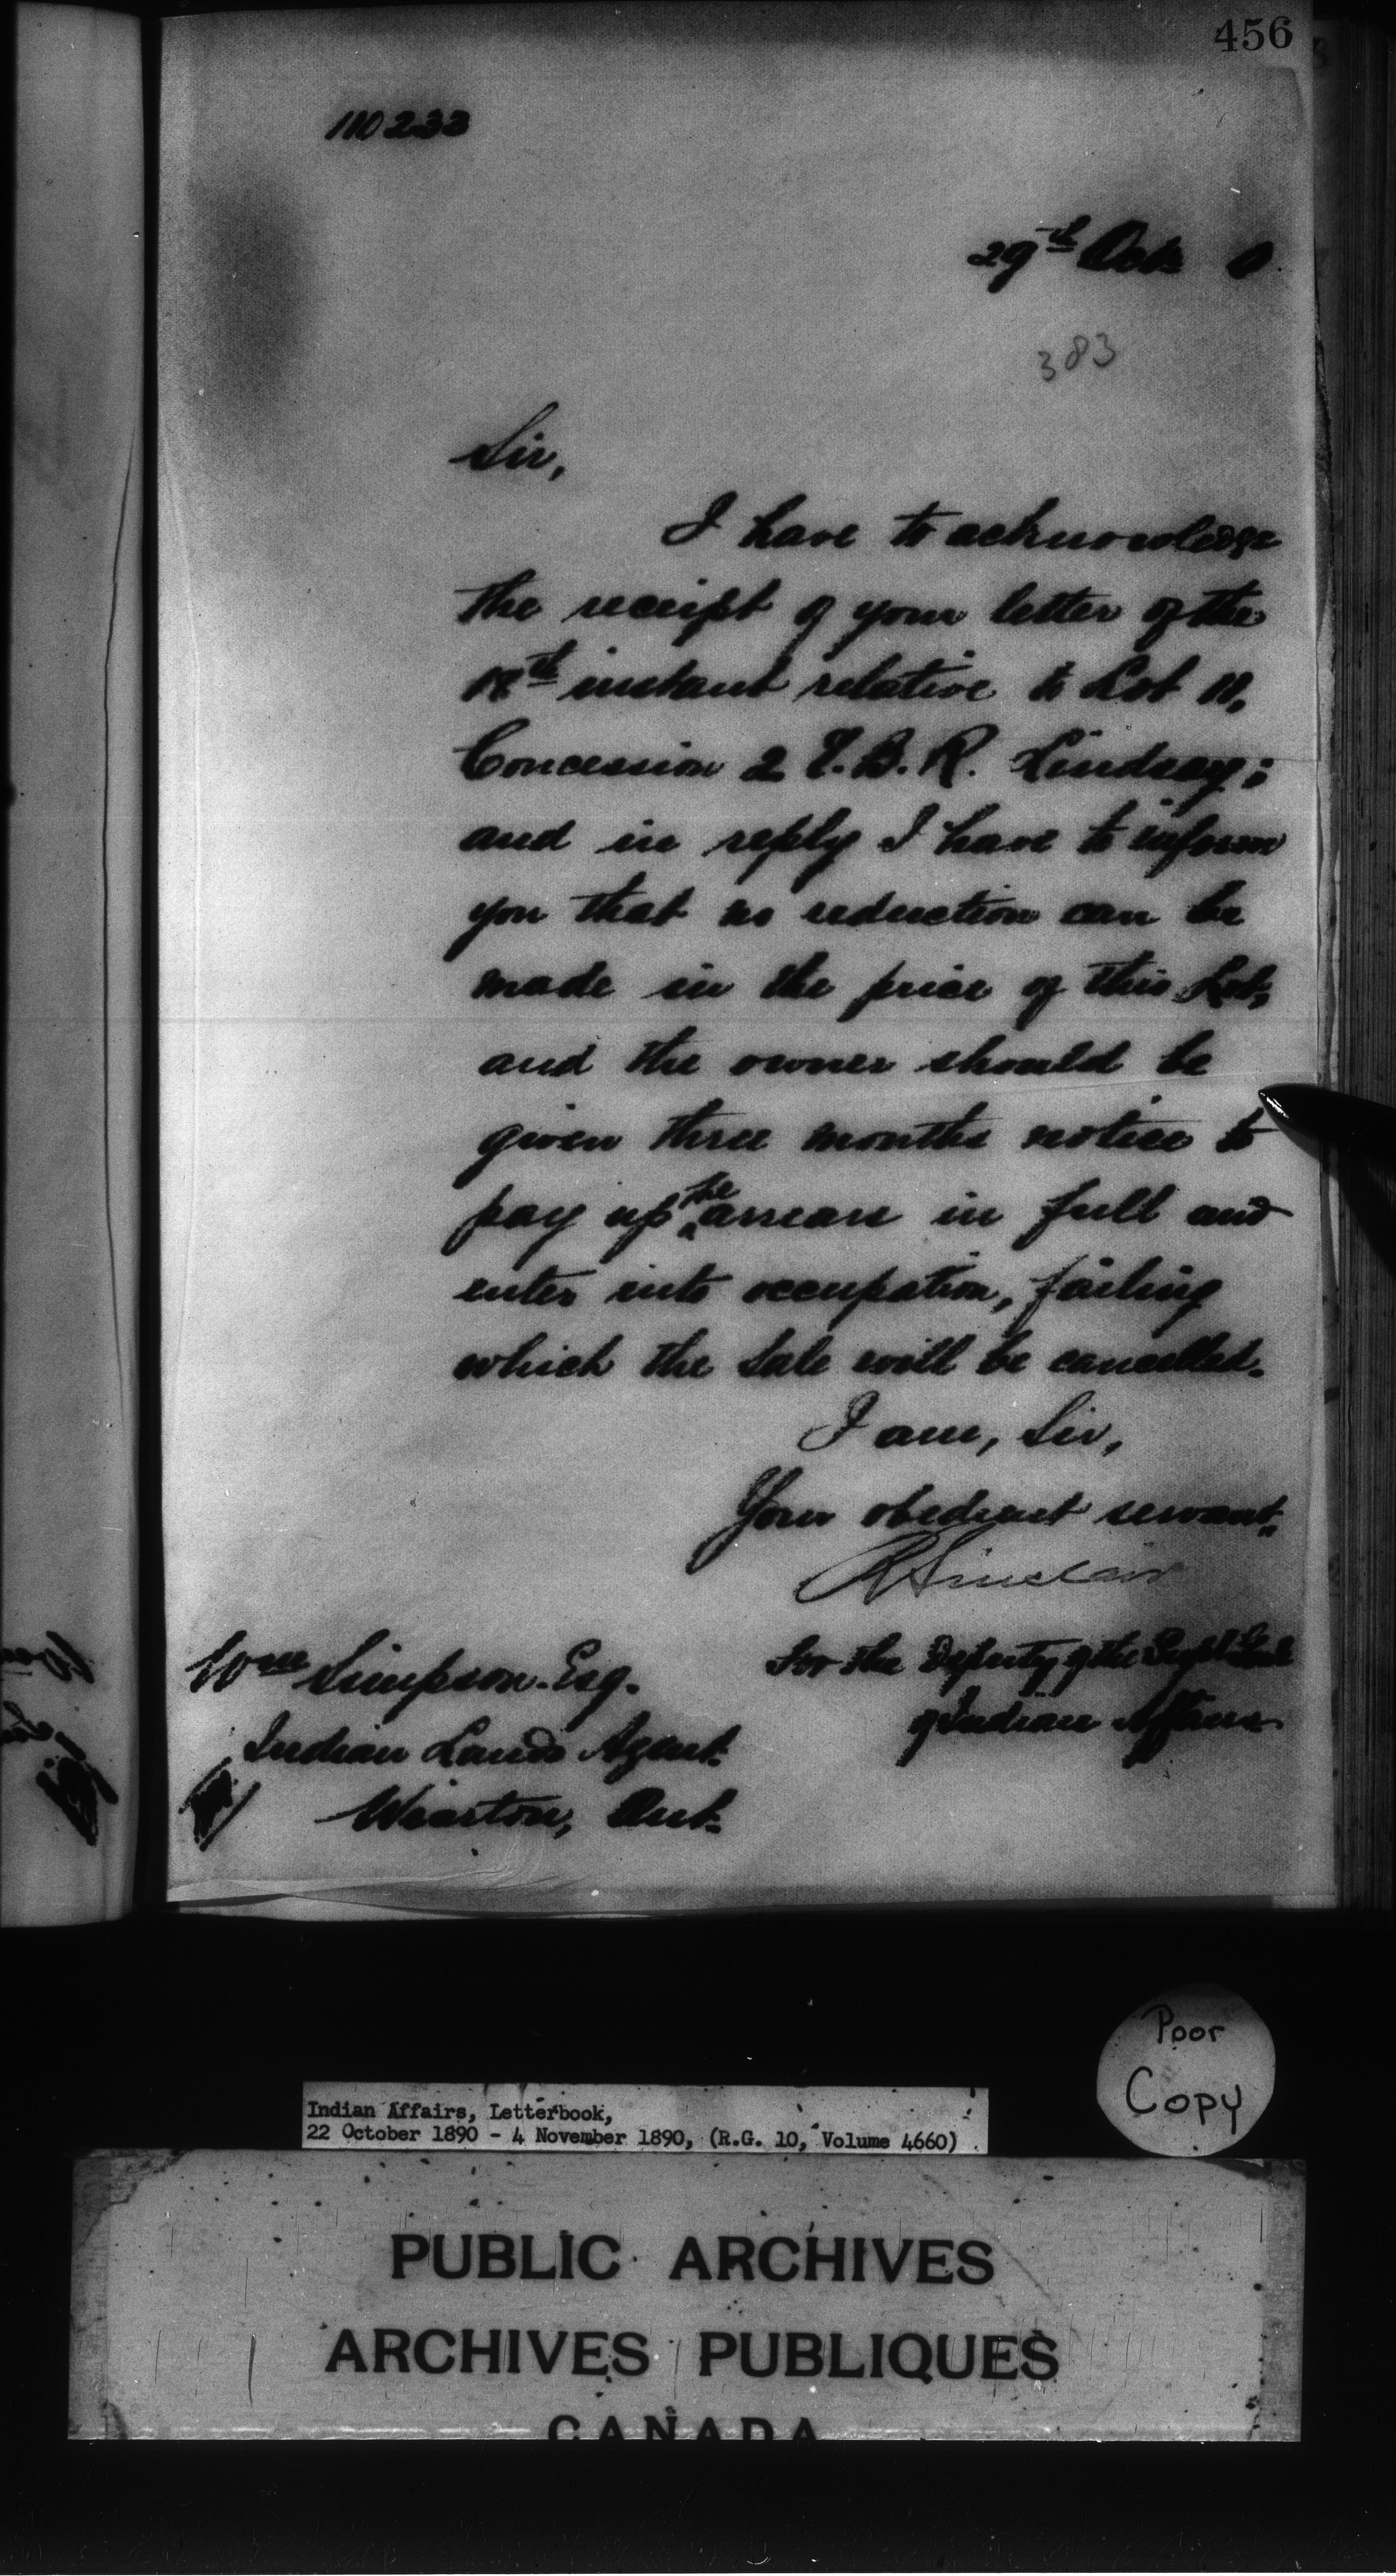 456
110233
29th Oct. 0
383
Sir,
I have to acknowledge
the receipt of your letter of the
18th instant relative to Lot 11,
Concession 2 E.B.R. Lindsay;
and in reply I have to inform
you that no reduction can be
made in the price of this Lot,
and the owner should be
given three months notice to
pay up the arrears in full and
enter into occupation, failing
which the Sale will be cancelled.
I am, Sir,
Your obedient servant,
R Sinclair
for the Deputy of the Supt. Genl
of Indian Affairs
Wm Simpson. Esq.
Indian Lands Agent.
Wiarton, Ont.
Poor
Copy
Indian Affairs, Letterbook,
22 October 1890 - 4 November 1890, (R.G. 10, Volume 4660)
PUBLIC ARCHIVES
ARCHIVES PUBLIQUES
CANADA